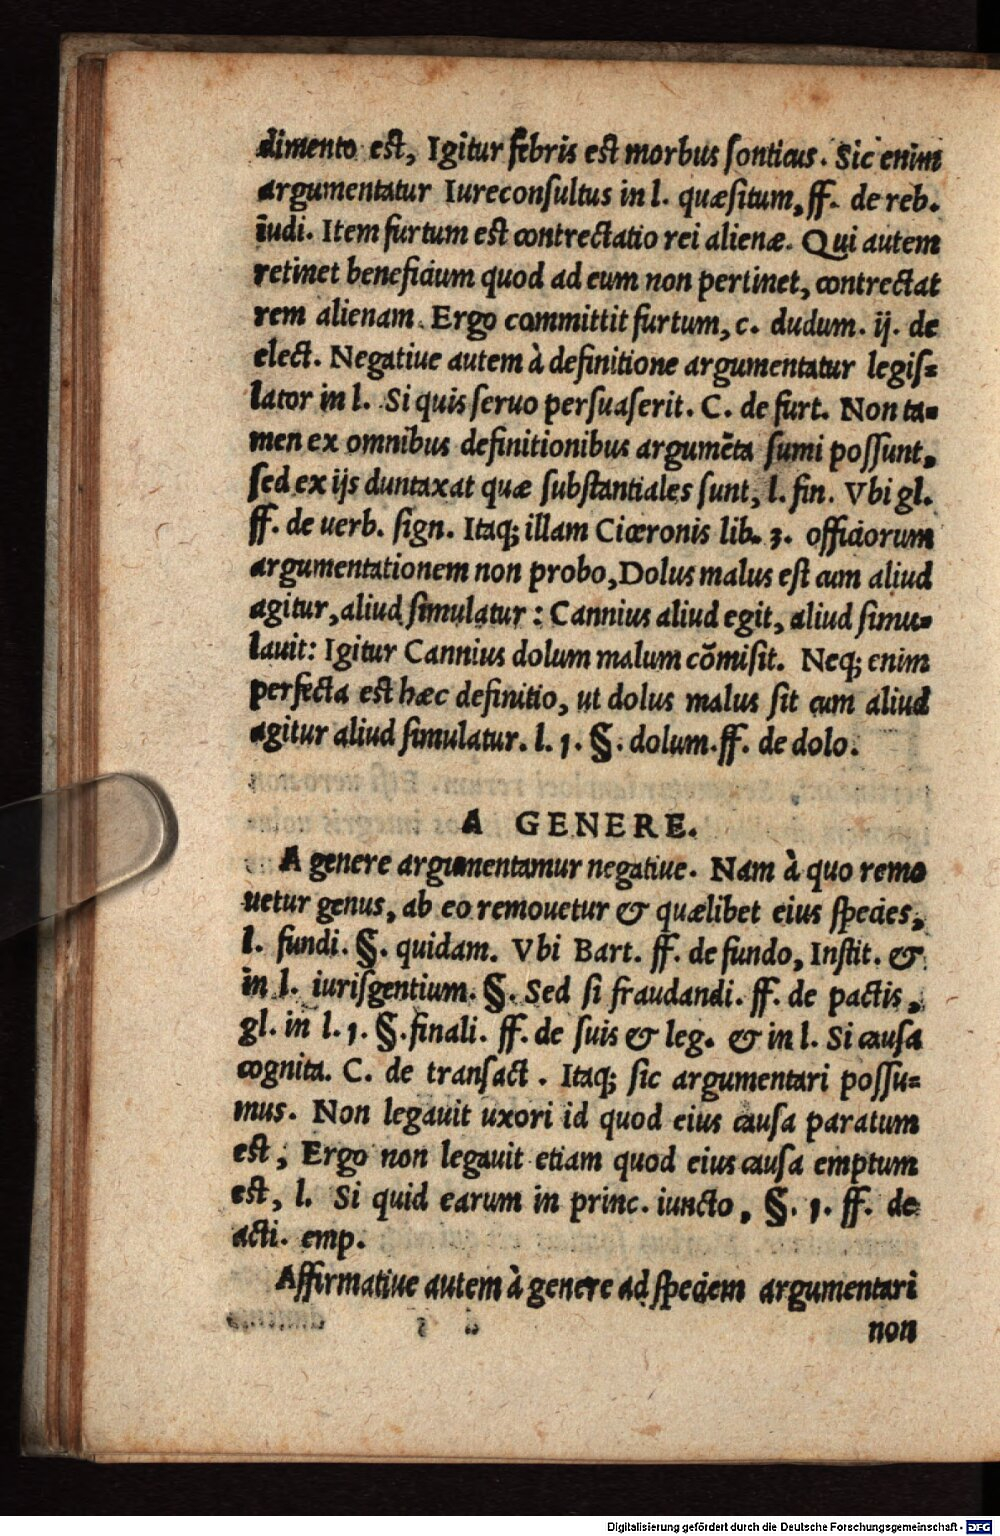 dimento est, Igitur febris est morbus sonticus. Sic enim
argumentatur Iureconsultus in l. quæsitum, ff. de reb.
iudi. Item furtum est contrectatio rei alienæ. Qui autem
retinet beneficium quod ad eum non pertinet, contrectat
rem alienam. Ergo committit furtum, c. dudum. ij. de
elect. Negatiue autem à definitione argumentatur legiſ=
lator in l. Si quis seruo persuaserit. C. de furt. Non ta=
men ex omnibus definitionibus argumēta sumi possunt,
sed ex ijs duntaxat quæ substantiales sunt, l. fin. Vbi gl.
ff. de uerb. sign. Itaq; illam Ciceronis lib. 3. officiorum
argumentationem non probo, Dolus malus est cum aliud
agitur, aliud simulatur : Cannius aliud egit, aliud simu=
lauit: Igitur Cannius dolum malum cōmisit. Neq; enim
perfecta est hæc definitio, ut dolus malus sit cum aliud
agitur aliud simulatur. l. 1. §. dolum. ff. de dolo.
A GENERE.
A genere argumentamur negatiue. Nam à quo remo
uetur genus, ab eo remouetur & quælibet eius species,
l. fundi. §. quidam. Vbi Bart. ff. de fundo, Instit. &
in l. iurisgentium. §. Sed si fraudandi. ff. de pactis,
gl. in l. 1. §. finali. ff. de suis & leg. & in l. Si causa
cognita. C. de transact. Itaq; sic argumentari possu=
mus. Non legauit uxori id quod eius causa paratum
est, Ergo non legauit etiam quod eius causa emptum
est, l. Si quid earum in princ. iuncto, §. 1. ff. de
acti. emp.
Affirmatiue autem à genere ad speciem argumentari
non
Digitalisierung gefördert durch die Deutsche Forschungsgemeinschaft - DFG